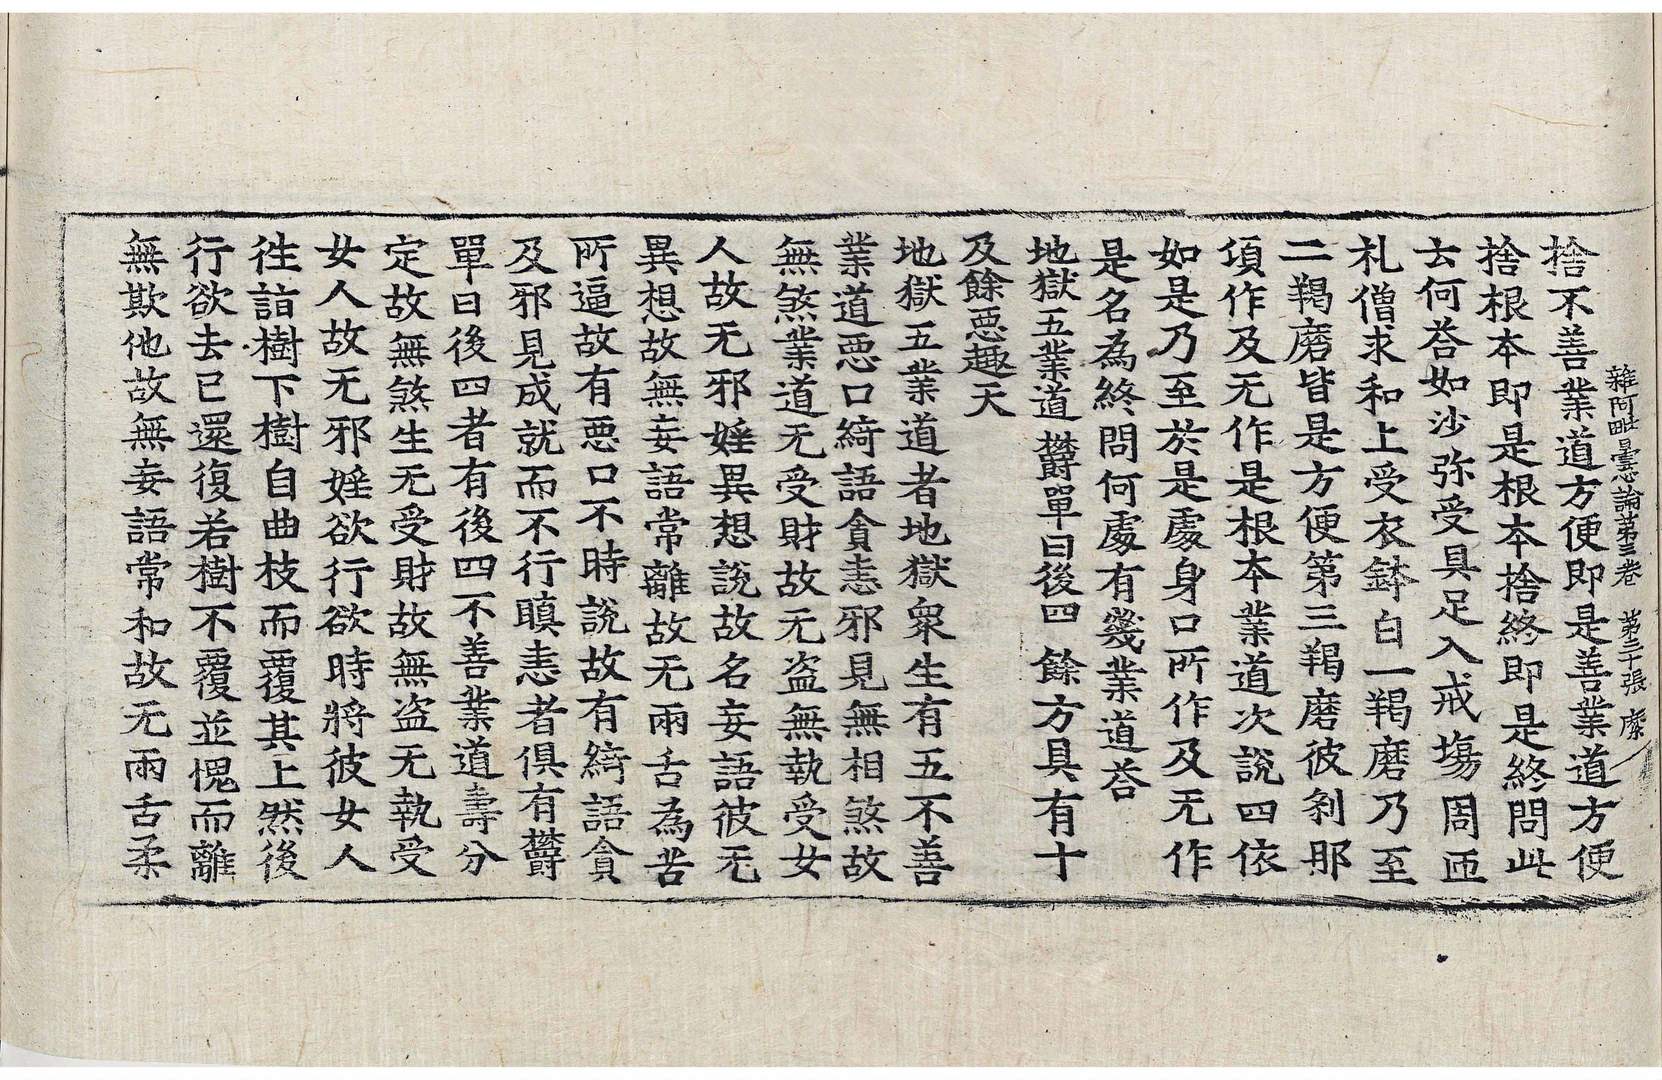 雜阿毗曇心論第三卷 第三十張 縻
捨不善業道方便即是善業道方便
捨根本即是根本捨終即是終問此
云何荅如沙弥受具足入戒場周匝
礼僧求和上受衣鉢白一羯磨乃至
二羯磨皆是方便第三羯磨彼剎那
頃作及无作是根本業道次說四依
如是乃至於是處身口所作及无作
是名為終問何處有幾業道荅
地獄五業道 欝單曰後四 餘方具有十
及餘惡趣天
地獄五業道者地獄眾生有五不善
業道惡口綺語貪恚邪見無相煞故
無煞業道无受財故无盜無執受女
人故无邪婬異想說故名妄語彼无
異想故無妄語常離故无兩舌為苦
所逼故有惡口不時說故有綺語貪
及邪見成就而不行瞋恚者俱有欝
單曰後四者有後四不善業道壽分
定故無煞生无受財故無盜无執受
女人故无邪婬欲行欲時將彼女人
往詣樹下樹自曲枝而覆其上然後
行欲去已還復若樹不覆並愧而離
無欺他故無妄語常和故无兩舌柔